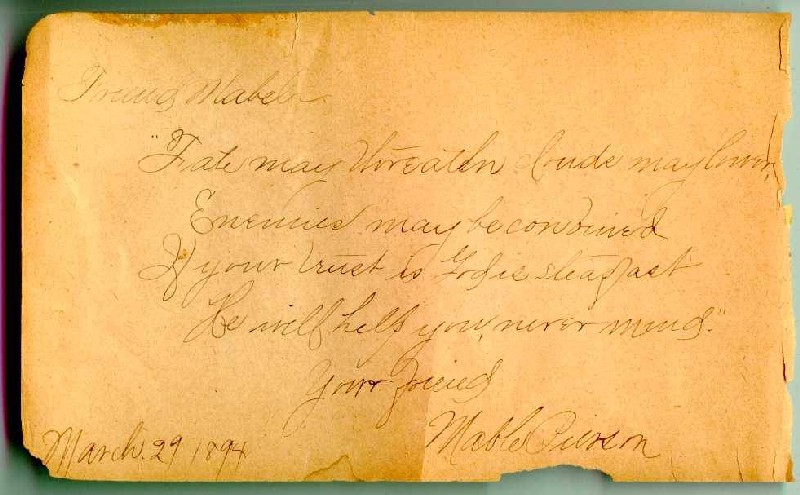 Friend Mabel
"Fate may threaten clouds may lower,
Enemies may be combined
If your trust is God is steadfast
He will help you, never mind."
Your friend
Mable Pierson
March. 29 1894